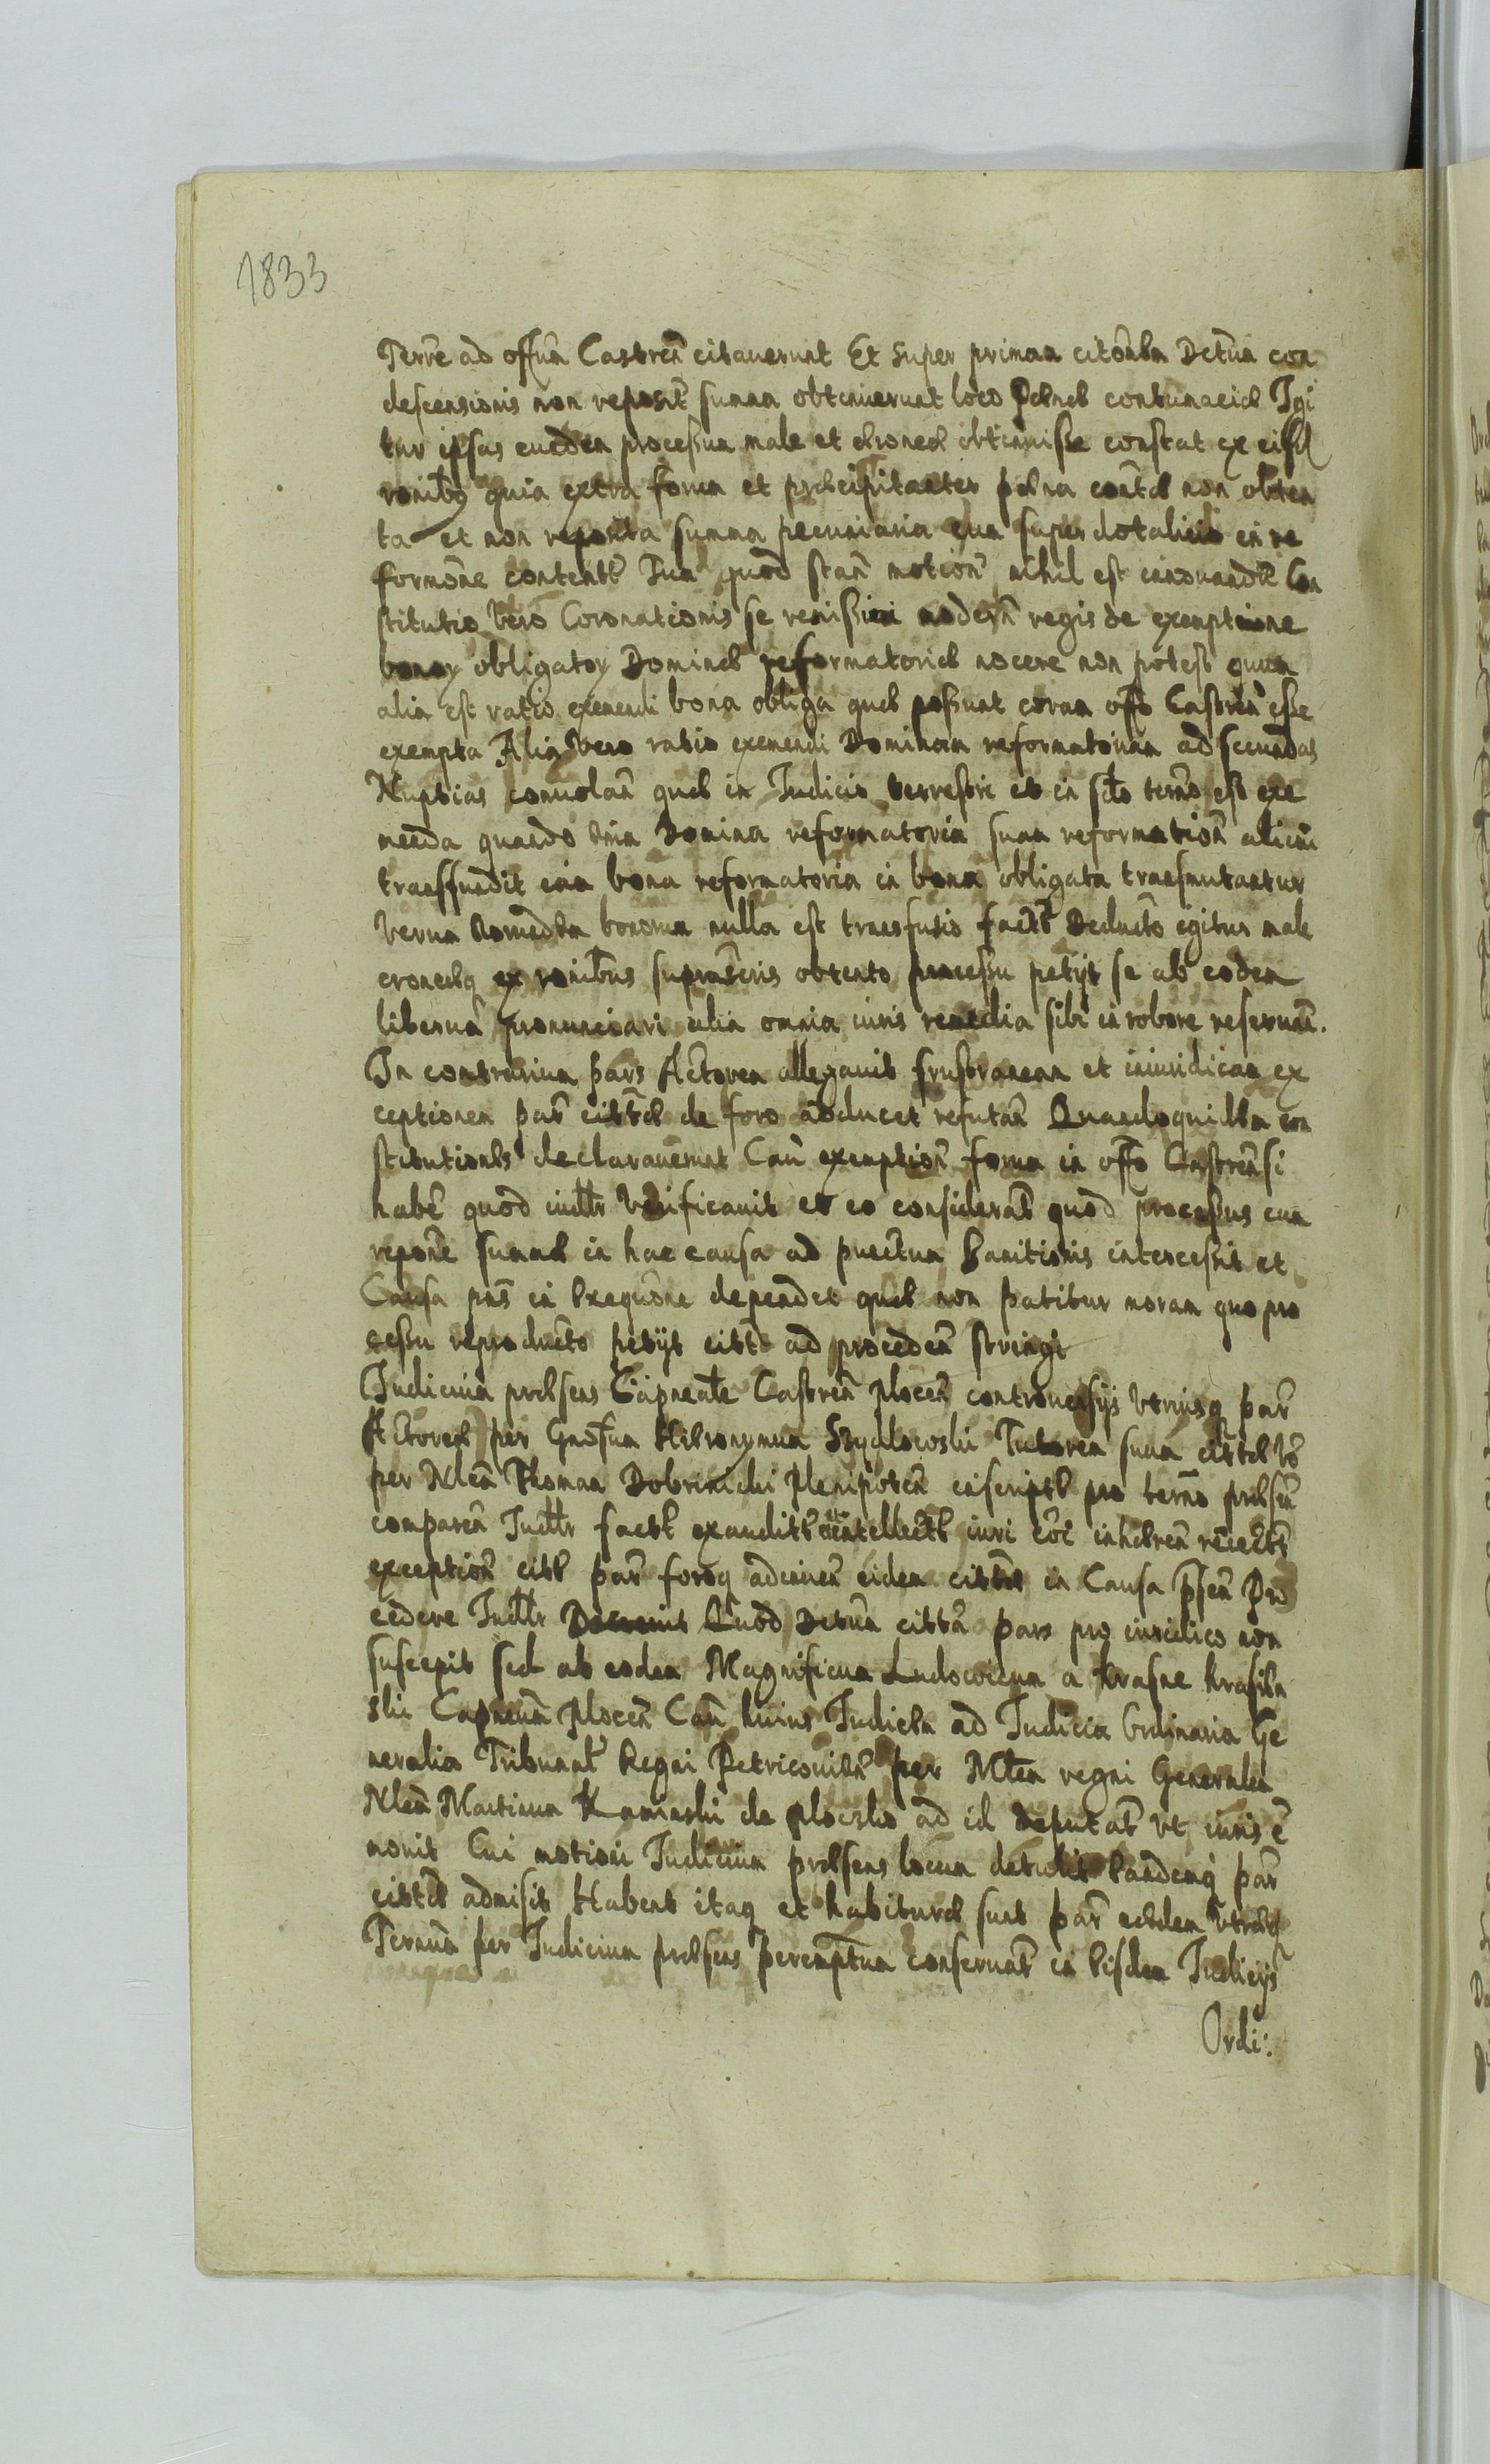 1833
Terre ad offm̄ Castren̄ citaverunt Et super primam citōnem Detum con
descensionis non reposit summa obtinuerunt loco paenae contumaciae Igi
tur ipsas eundem processum male et erronee obtinuisse constat ex eisd
ronibq quia extra forum et praecipitanter paena contae non obten
ta et non reposita summa pecuniaria cum super dotalicio in re
formōne content Tum quod stan motion nihil est innovand Con
stitutio vero Coronationis se renissimi modern regis de exemptione
bonor obligator Dominae reformatoriae nocere non potest quum
alia est ratio exemendi bona obliga quae possunt coram offo Castren esse
exempta Alia vero ratio exemendi Dominam reformatoriam ad secundas
Nuptias convolan quae in Judicio terrestri et in termo est exe
menda quando Domina reformatoria suam reformation alicui
transfundit bona reformatoria in bona obligata transmutantur
Verum bonorum nulla est transfusio fact Deducto igitur male
eroneeq ex ronibus suprascris obtento processu petyt se ab eodem
liberum pronunciari alia omnia iuris remedia sibi in robore reservan.
In contrarium pars Actorea allegavit frustraneam et iniuridicam ex
ceptionem par citatae de foro adducet refutan Quandoquidem con
stitutiones declaraverunt Cau exemption forum in offo Castrensi
habe quod indtr verificavit et eo considerat quod processus cum
repone summae in hac causa ad punctum Banitionis intercessit et
Causa pns in Exequōne dependet quae non patitur moram quo pro
cessu reproducto petyt citat ad proceden stringi
Judicium praesens Capneale Castren Plocen controversijs utriusq par
Actoreae per Gnosum Hieronymum Szydlowski Tutorem suum citatae vo
per Nlem Thomam Dobrinicki Plenipoten inscript pro termo praesen
comparen Judtr fact exaudit et intellect iuri coi inhaeren reiect
exception citt par foroq adinven eidem citatae in Causa psen Pro
cedere Judtr Decrevit Quod Detum cittā pars pro iuridico non
suscepit sed ab eodem Magnificum Ludowicum a Krasne Krasin
ski Capneum Plocen Cau huius Judicem ad Judicia Ordinaria Ge
neralia Tribunal Regni Petricovien per Mtem regni Generalem
Nlem Martinum Kaminski de Plocsko ad id deputat ut iuris e
movit Cui motioni Judicium praesens locum detulit Eandemq par
cittae admisit Habent itaq et habiturae sunt par eaedem utraeq
Termum per Judicium praesens peremptum conservat in Eisdem Judicijs
Ordi: